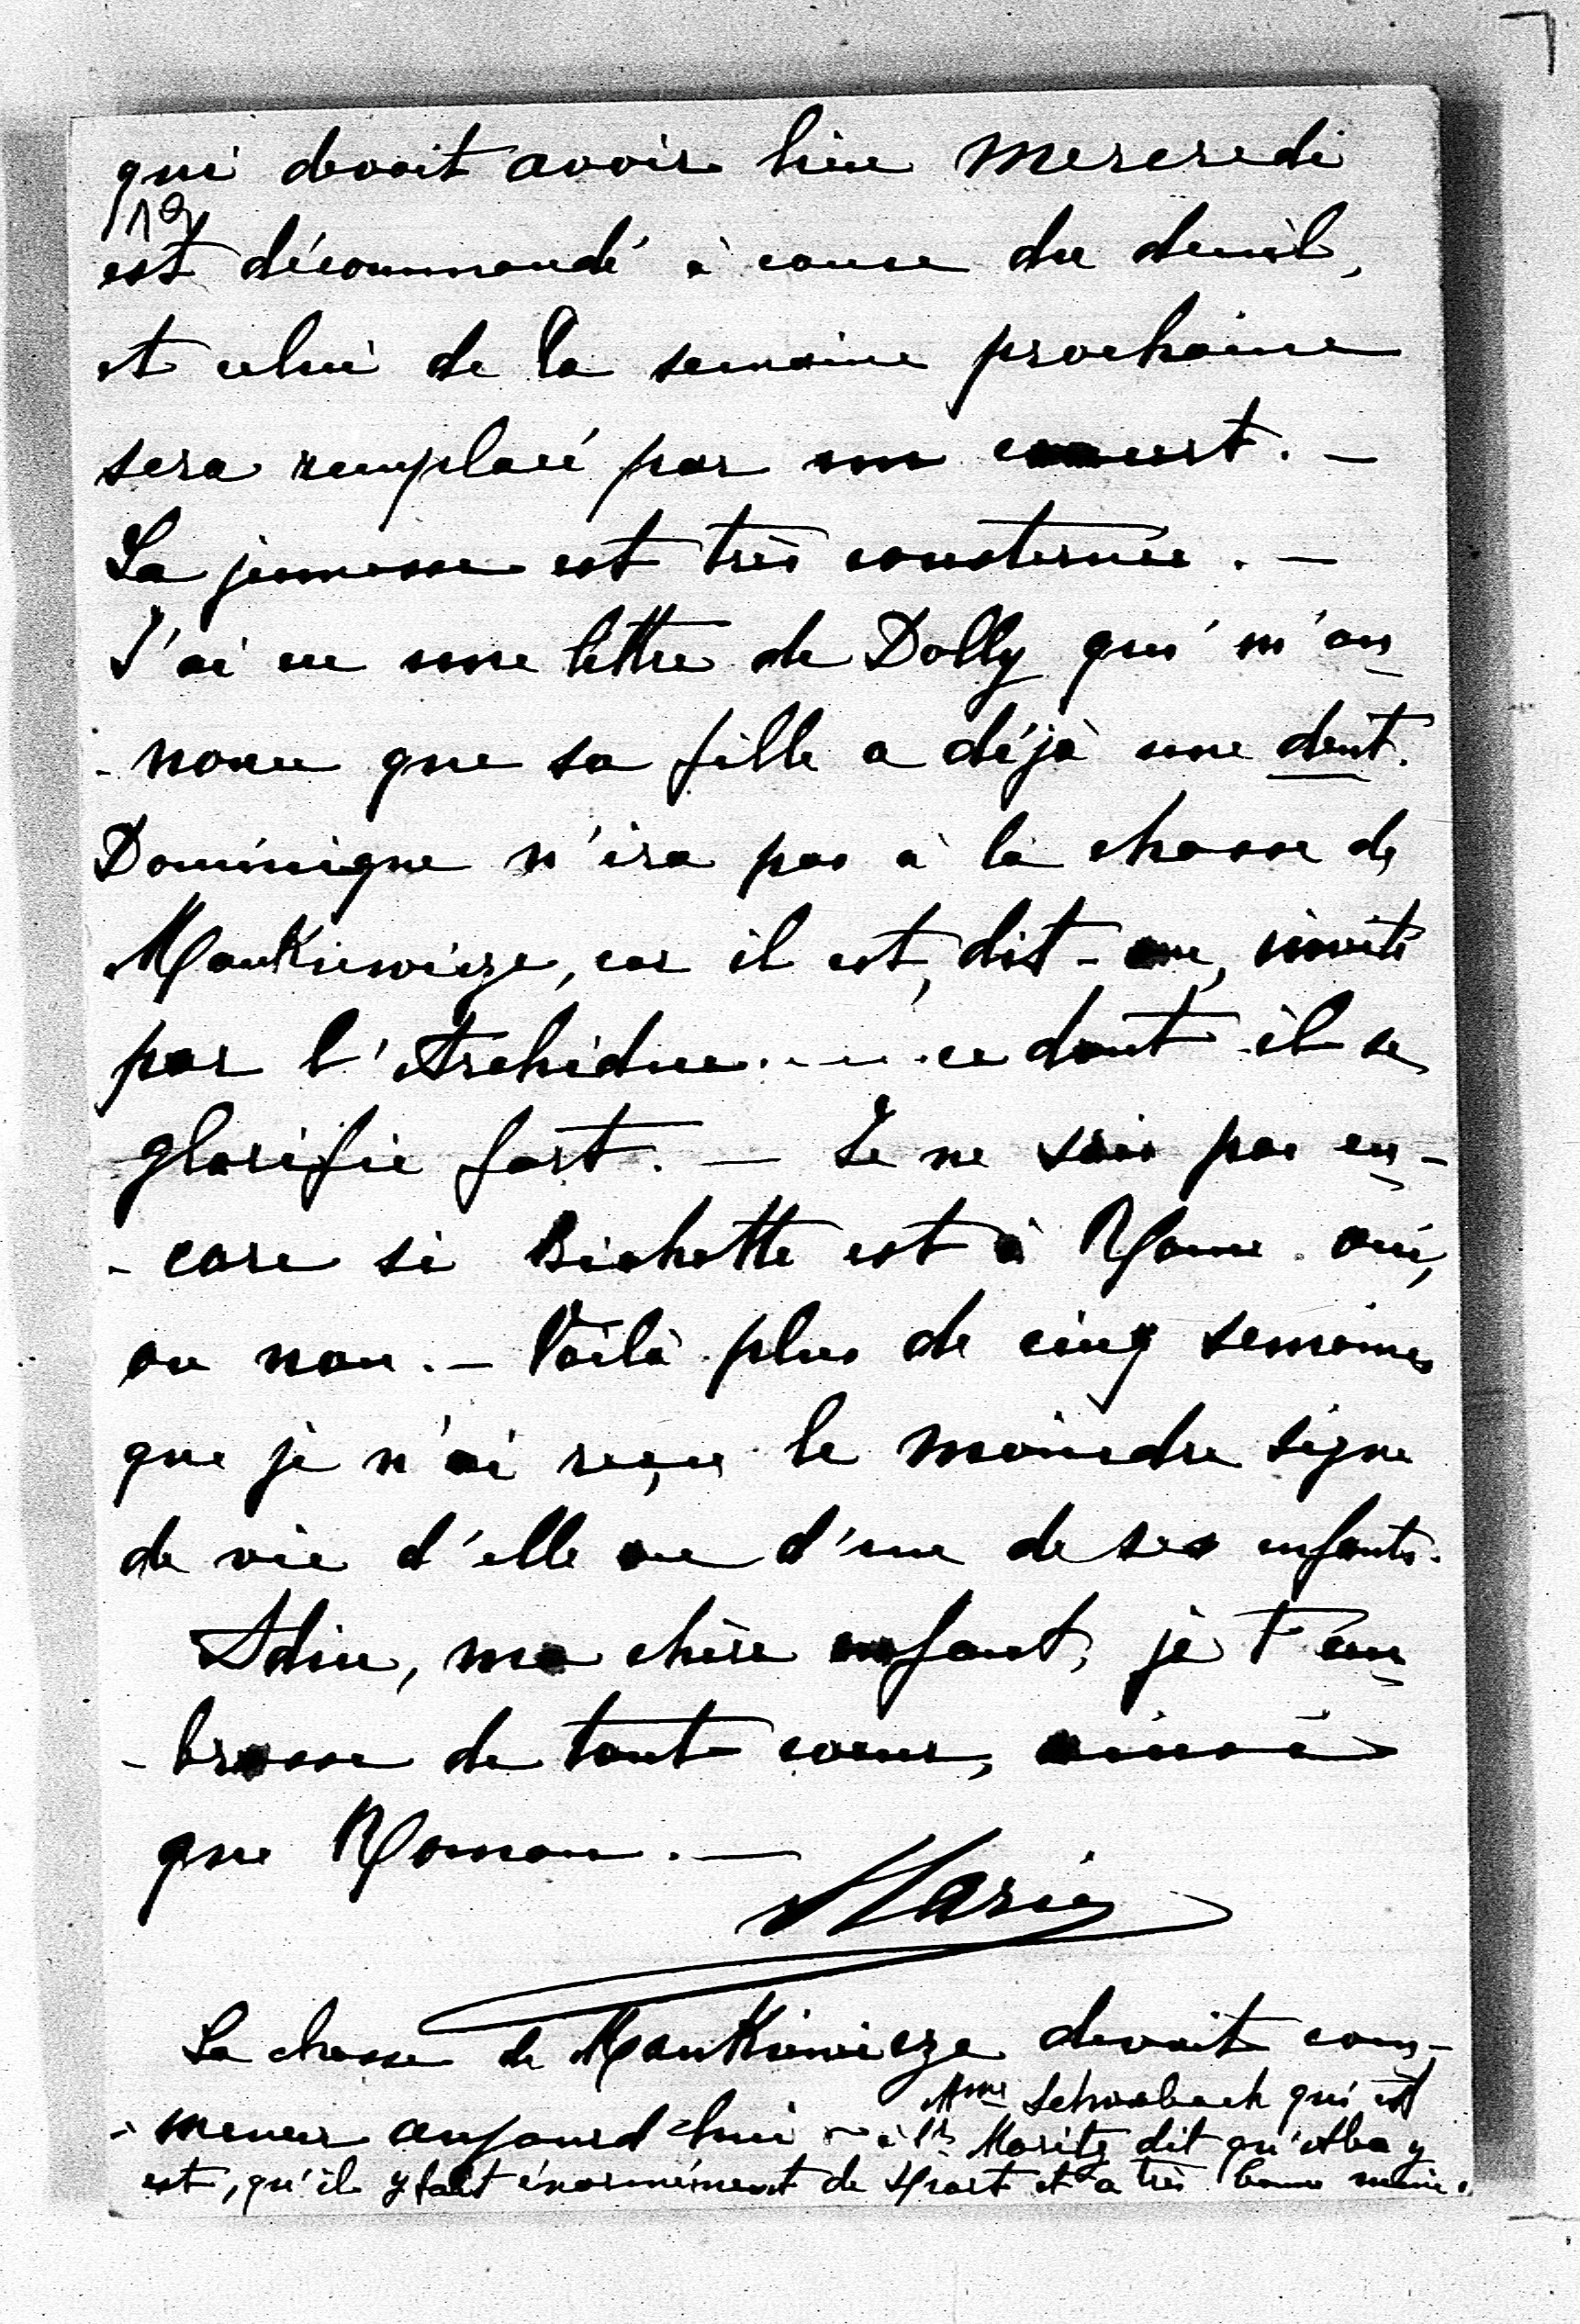 qui devait avoir lieu mercredi
19
est décommandé à cause du deuil,
et celui de la semaine prochaine
sera remplacé par un concert. —
La jeunesse est très consternée. —
J'ai eu une lettre de Dolly qui m'an-
-nonce que sa fille a déjà une dent.
Dominique n'ira pas à la chasse de
Mankiewicze, car il est, dit-on, invité
par l'Archiduc..... ce dont il se
glorifie fort. — Je ne sais pas en-
-core si Bichette est à Rome oui,
ou non. — Voilà plus de cinq semaines
que je n'ai reçu le moindre signe
de vie d'elle ou d'une de ses enfants.
Adieu, ma chère enfant, je t'em-
-brasse de tout cœur, ainsi
que Roman. —
Marie
La chasse de Mankiewicze devait com-
-mencer aujourd'hui ~ Mme Schwabach qui est
à St Moritz dit qu'Aba y
est, qu'il y fait énormément de sport et a très bonne mine.